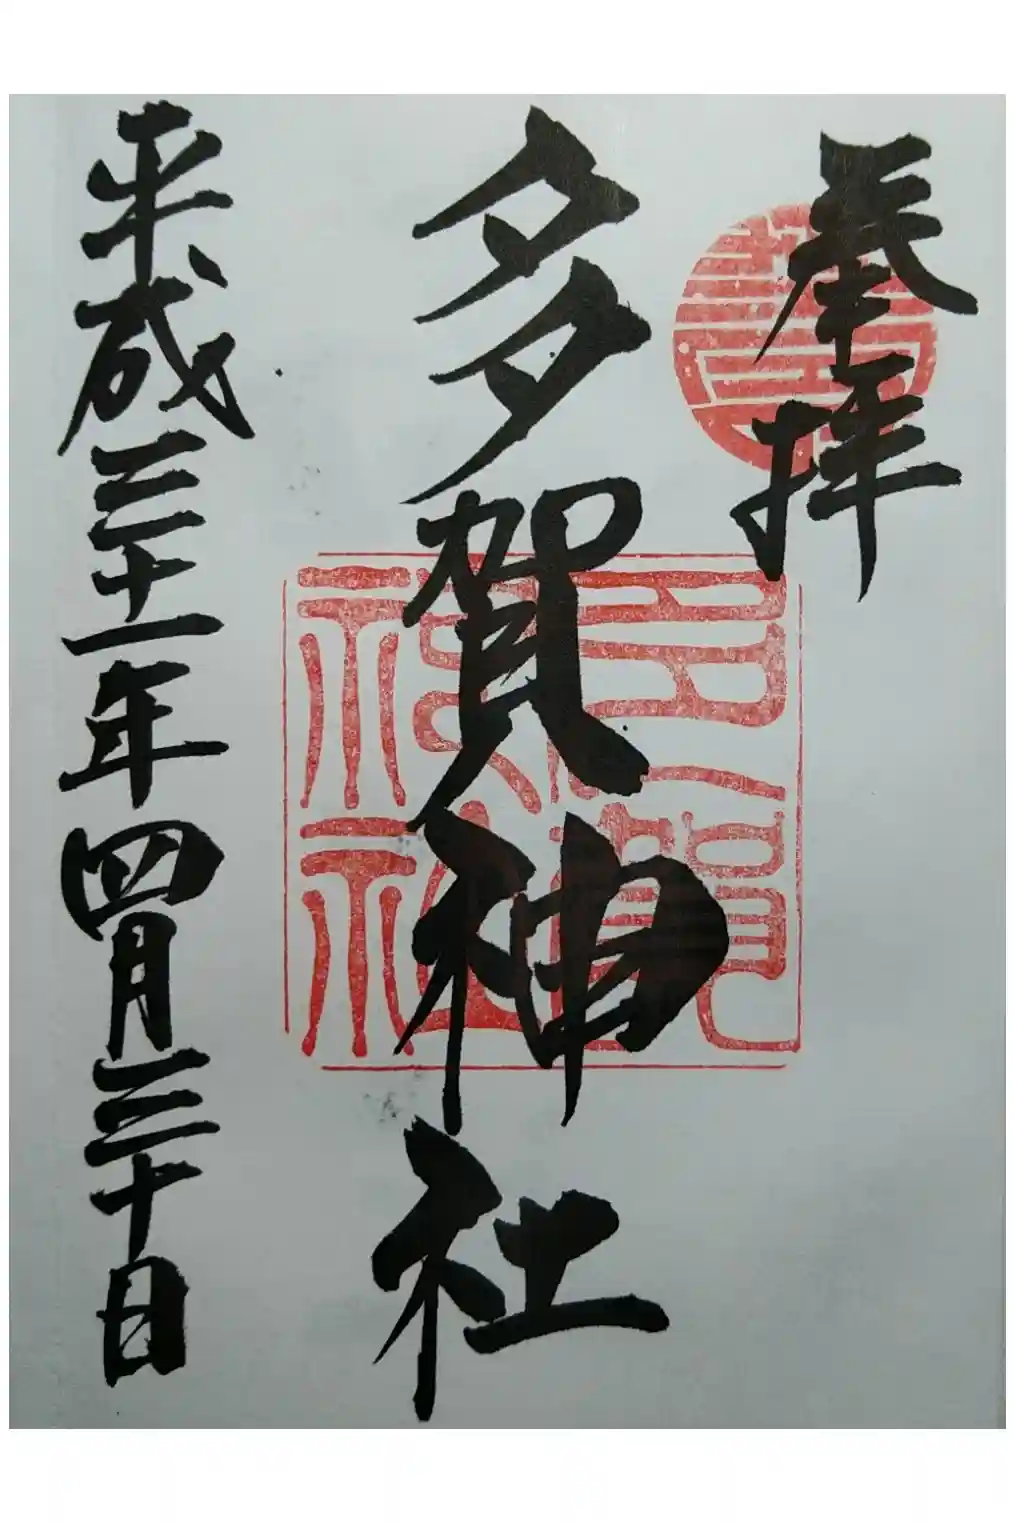 奉拝
多賀神社
平成三十一年四月三十日
多賀神社